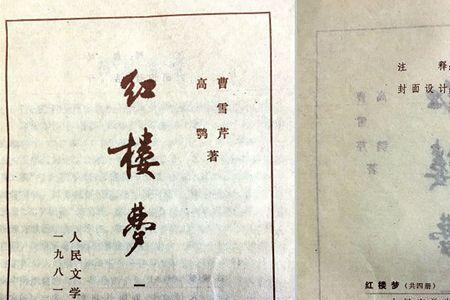 曹雪芹
高鹗
著
红楼梦
一
人民文学
一九八一
注 释
封面设计
红楼梦（共四册）